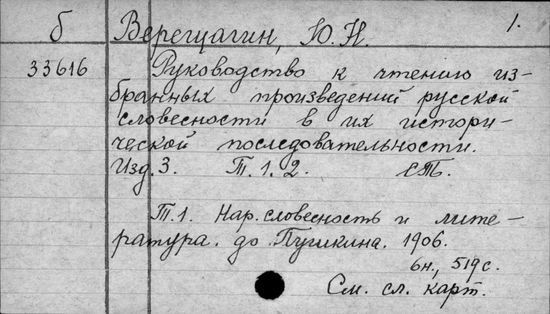 б Верещагин, Ю. Н. 1.
33616 Руководство к чтению из-
бранных произведений русской
словесности в их истори-
ческой последовательности.
Изд. 3. Т. 1. 2. СПБ.
Т. 1. Нар. словесность и лите-
ратура. до Пушкина. 1906.
6н., 519 с.
См. сл. карт.